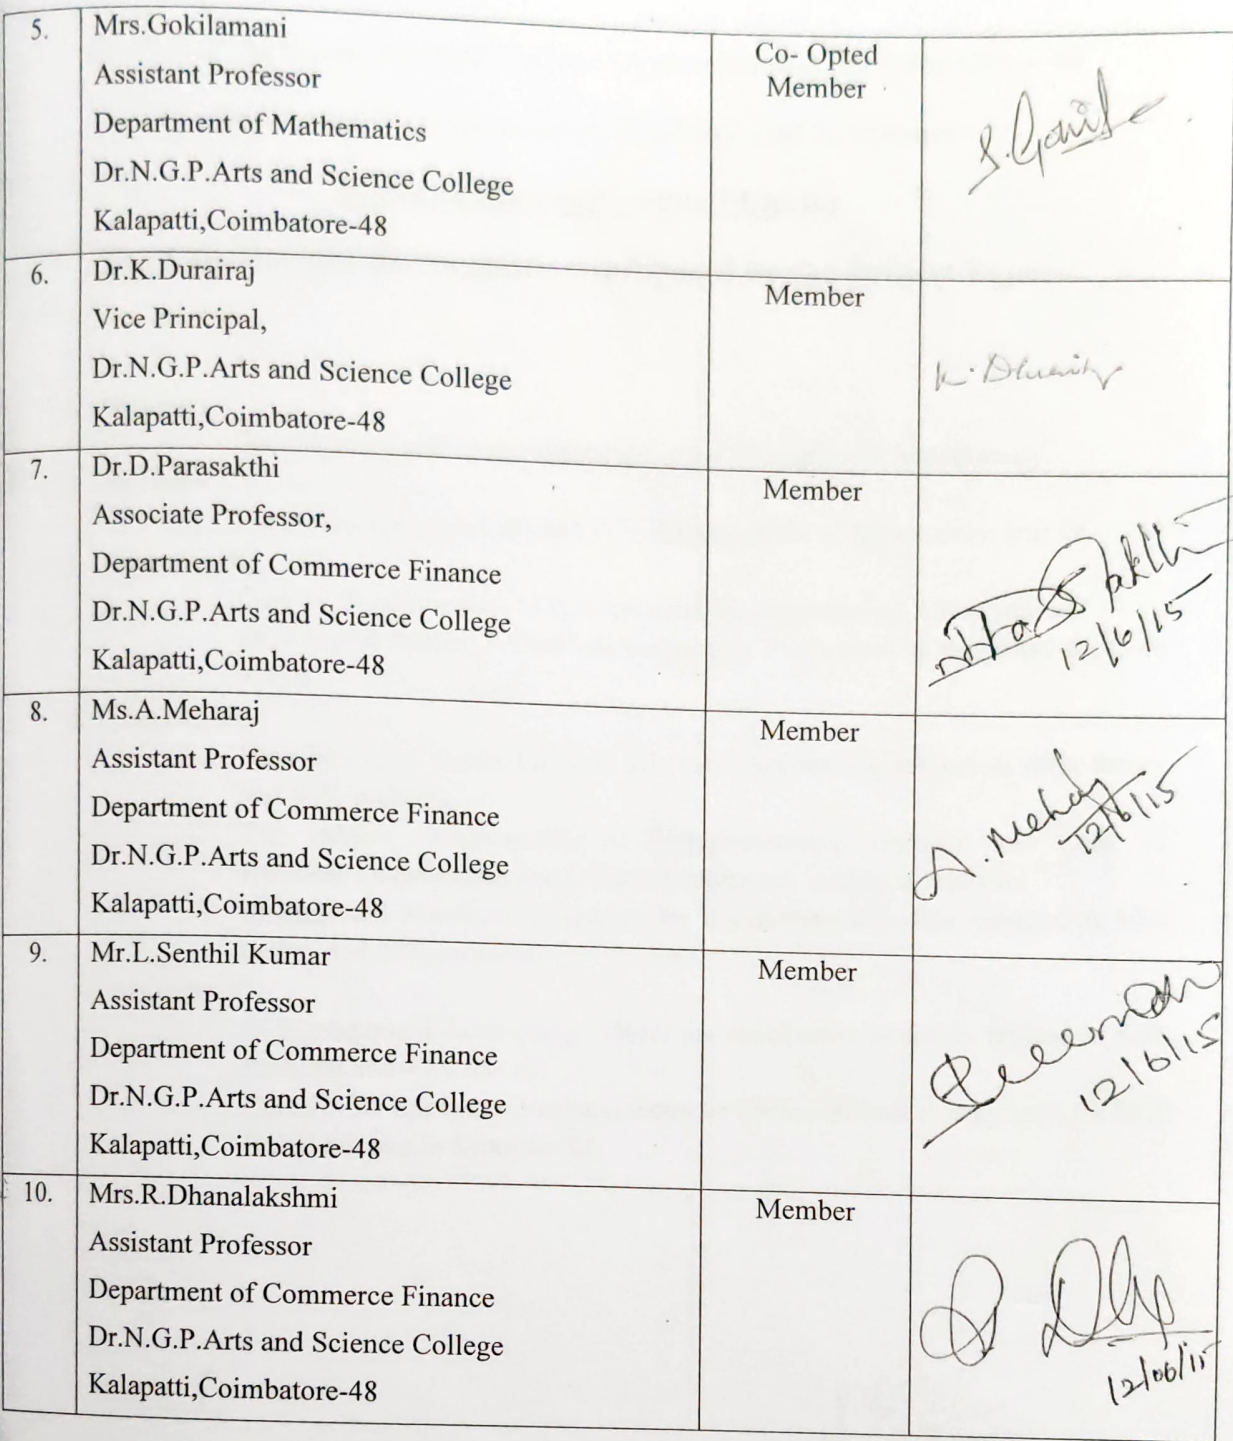 5.
Mrs.Gokilamani
Assistant Professor
Department of Mathematics
Dr.N.G.P.Arts and Science College
Kalapatti,Coimbatore-48
Co- Opted
Member
6.
Dr.K.Durairaj
Vice Principal,
Dr.N.G.P.Arts and Science College
Kalapatti,Coimbatore-48
Member
7.
Dr.D.Parasakthi
Associate Professor,
Department of Commerce Finance
Dr.N.G.P.Arts and Science College
Kalapatti,Coimbatore-48
Member
12/6/15
8.
Ms.A.Meharaj
Assistant Professor
Department of Commerce Finance
Dr.N.G.P.Arts and Science College
Kalapatti,Coimbatore-48
Member
12/6/15
9.
Mr.L.Senthil Kumar
Assistant Professor
Department of Commerce Finance
Dr.N.G.P.Arts and Science College
Kalapatti,Coimbatore-48
Member
12/6/15
10.
Mrs.R.Dhanalakshmi
Assistant Professor
Department of Commerce Finance
Dr.N.G.P.Arts and Science College
Kalapatti,Coimbatore-48
Member
12/06/15